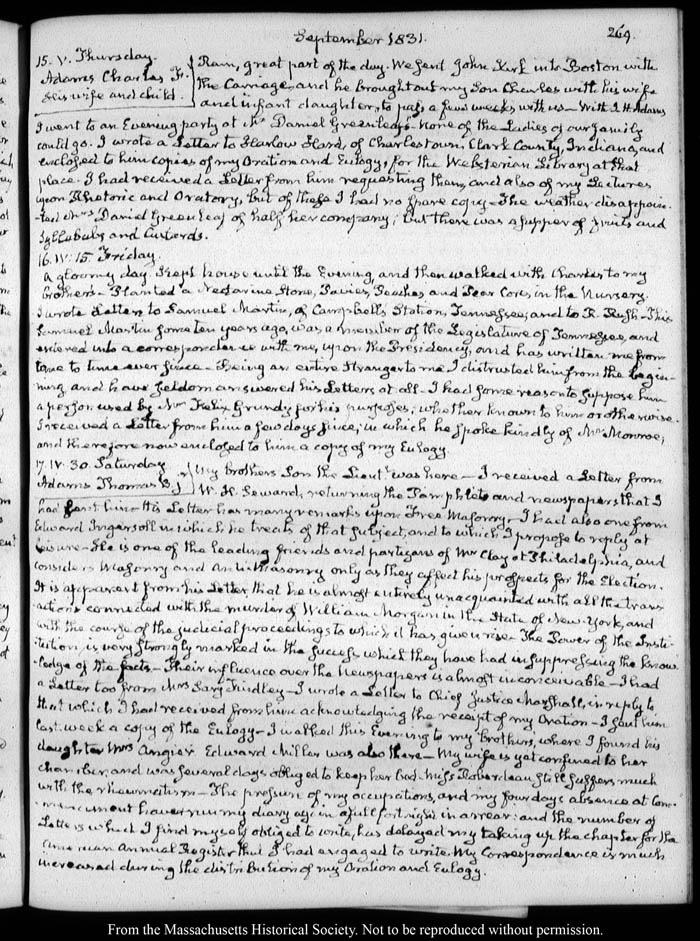 September 1831.
269.
15. V. Thursday.
Adams Charles F.
his wife and child
Rain, great part of the day. We sent John Kirk into Boston with
the Carriage, and he brought out my Son Charles with his wife
and infant daughter, to pass a few weeks with us — With I. H. Adams
I went to an Evening party at Mr Daniel Greenleaf's. None of the Ladies of our family
could go. I wrote a Letter to Harlow Hard, of Charlestown, Clark County, Indiana, and
enclosed to him copies of my Oration and Eulogy, for the Websterian Library at that
place. I had received a Letter from him requesting them, and also of my Lectures
upon Rhetoric and Oratory, but of these I had no spare copy. The weather disappoin-
-ted Mrs Daniel Greenleaf of half her company; but there was a supper of fruits and
Syllabubs and Custards.
16. IV. 15. Friday.
A gloomy day. I kept house until the Evening, and then walked with Charles to my
brother's — Planted a Nectarine Stone, Pavies, Peaches and Pear Cores in the Nursery.
I wrote Letters to Samuel Martin, of Campbell's Station, Tennessee, and to R. Rush — This
Samuel Martin some ten years ago, was a member of the Legislature of Tennessee, and
entered into a correspondence with me, upon the Presidency, and has written me from
time to time ever since — Being an entire Stranger to me I distrusted him from the begin-
ning, and have seldom answered his Letters at all. I had some reason to suppose him
a person used by Mr Felix Grundy for his purposes; whether known to him or otherwise.
I received a Letter from him a few days since, in which he spoke kindly of Mr Monroe;
and therefore now enclosed to him a copy of my Eulogy.
17. IV. 30. Saturday
Adams Thomas B. J
My brother's Son the Lieutt was here — I received a Letter from
W. H. Seward, returning the Pamphlets and newspapers that I
had sent him. His Letter has many remarks upon Free Masonry — I had also one from
Edward Ingersoll in which he treats of that subject, and to which I propose to reply at
leisure — He is one of the leading friends and partizans of Mr Clay at Philadelphia, and
considers Masonry and Antimasonry, only as they affect his prospects for the Election.
It is apparent from his Letter that he is almost entirely unacquainted with all the trans
actions connected with the murder of William Morgan in the State of New-York, and
with the course of the judicial proceedings to which it has given rise — The Power of the Insti-
tution, is very strongly marked in the success which they have had in suppressing the know-
-ledge of the facts — Their influence over the Newspapers is almost inconceivable — I had
a Letter too from Mrs Findley — I wrote a Letter to Chief Justice Marshall, in reply to
that which I had received from him acknowledging the receipt of my Oration — I sent him
last week a copy of the Eulogy — I walked this Evening to my brother's, where I found his
daughter Mrs Angier. Edward Miller was also there — My wife is yet confined to her
chamber, and was several days obliged to keep her bed. Miss Roberdeau still suffers much
with the rheumatism — The pressure of my occupations, and my four days absence at Com-
-mencement have run my diary again a full fortnight in arrear: and the number of
Letters which I find myself obliged to write, has delayed my taking up the chapter for the
American Annual Register that I had engaged to write. My Correspondence is much
increased during the distribution of my Oration and Eulogy.
From the Massachusetts Historical Society. Not to be reproduced without permission.